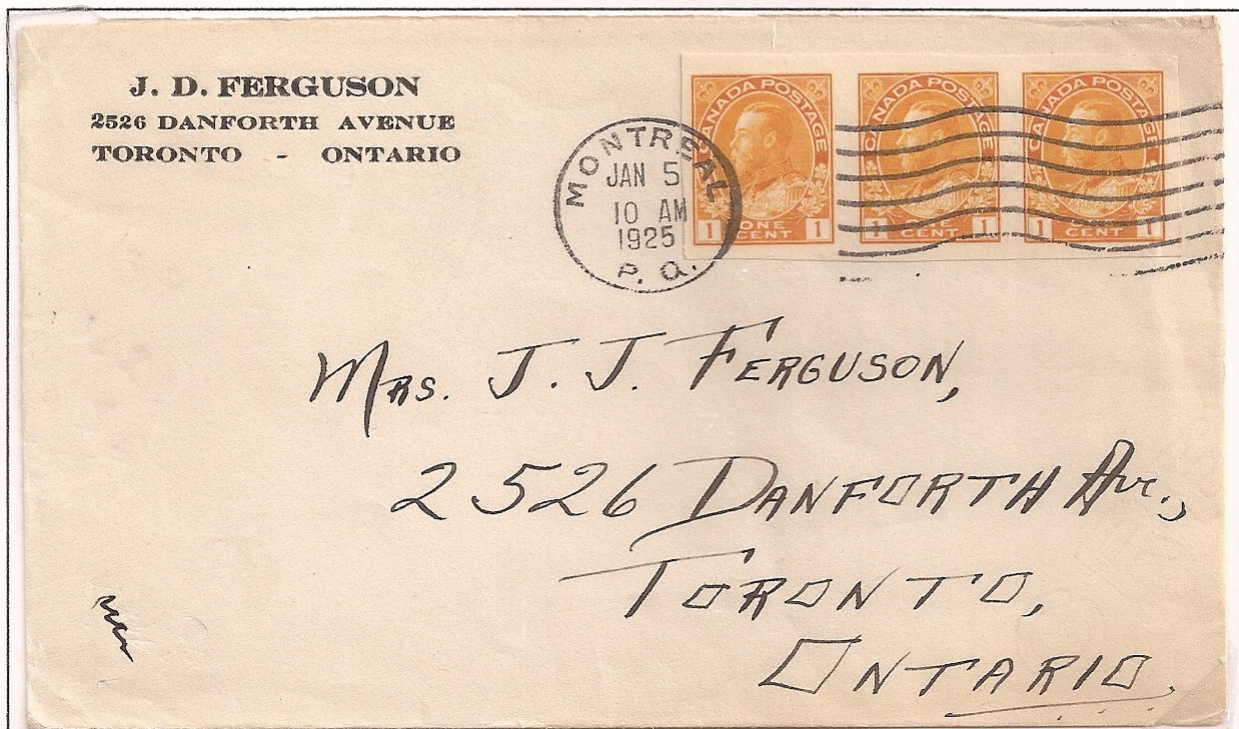 J. D. FERGUSON
2526 DANFORTH AVENUE
TORONTO - ONTARIO
MONTREAL
JAN 5
10 AM
1925
P. Q.
CANADA POSTAGE
1 ONE CENT 1
CANADA POSTAGE
1 ONE CENT 1
CANADA POSTAGE
1 ONE CENT 1
MRS. J. J. FERGUSON,
2526 DANFORTH Ave.,
TORONTO,
ONTARIO.